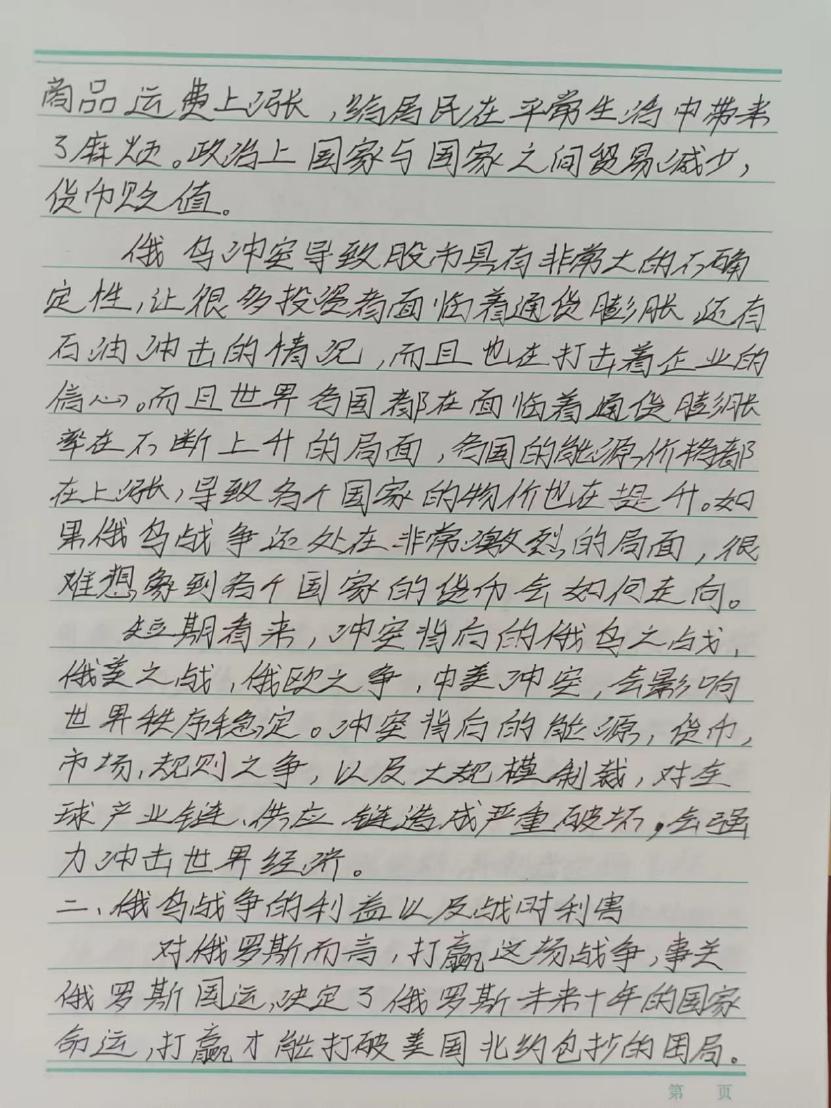 商品运费上涨,给居民在平常生活中带来
了麻烦。政治上国家与国家之间贸易减少,
货币贬值。
俄乌冲突导致股市具有非常大的不确
定性,让很多投资者面临着通货膨胀还有
石油冲击的情况,而且也在打击着企业的
信心。而且世界各国都在面临着通货膨胀
率在不断上升的局面,各国的能源价格都
在上涨,导致各个国家的物价也在提升。如
果俄乌战争还处在非常激烈的局面,很
难想象到各个国家的货币会如何走向。
短期看来,冲突背后的俄乌之战,
俄美之战,俄欧之争,中美冲突,会影响
世界秩序稳定。冲突背后的能源,货币,
市场、规则之争,以及大规模制裁,对全
球产业链、供应链造成严重破坏,会强
力冲击世界经济。
二、俄乌战争的利益以及战时利害
对俄罗斯而言,打赢这场战争,事关
俄罗斯国运,决定了俄罗斯未来十年的国家
命运,打赢才能打破美国北约包抄的困局。
第 页